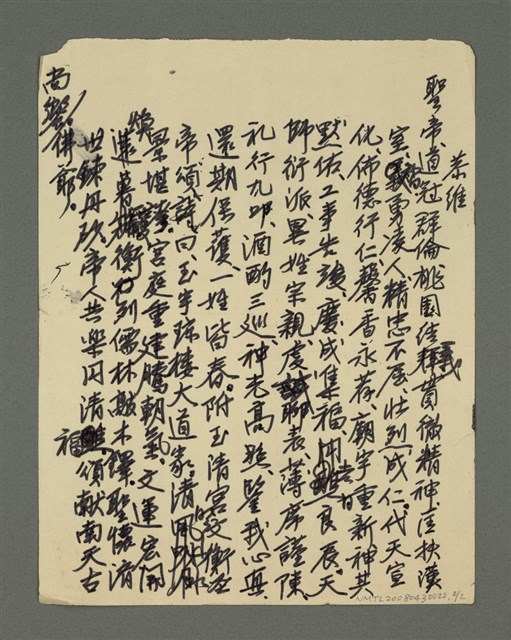 恭維
聖帝道冠群倫桃園結義貫徹精神匡扶漢
室義勇凌人精忠不屈壯烈成仁代天宣
化、佈德行仁、馨香永荐、廟宇重新神其
默佑、工事告竣、慶成集福、用 良辰、天
師衍派、異姓宗親、虔誠聊表、薄席謹陳、
礼行九叩、酒酌三巡、神光高照、鑒我心典、
還期保護、一姓皆春。附玉清宮文衡
帝頌、詩曰、玉宇琼樓大道家。清風
景堪 宮庭重建騰朝氣。文運宏開
進 衡 列儒林敲木鐸。聖懷濟
世鍊丹砂、帝人共樂同清福 。頌献南天古
佛爺。
尚饗
NMTL20080430022, 2/2